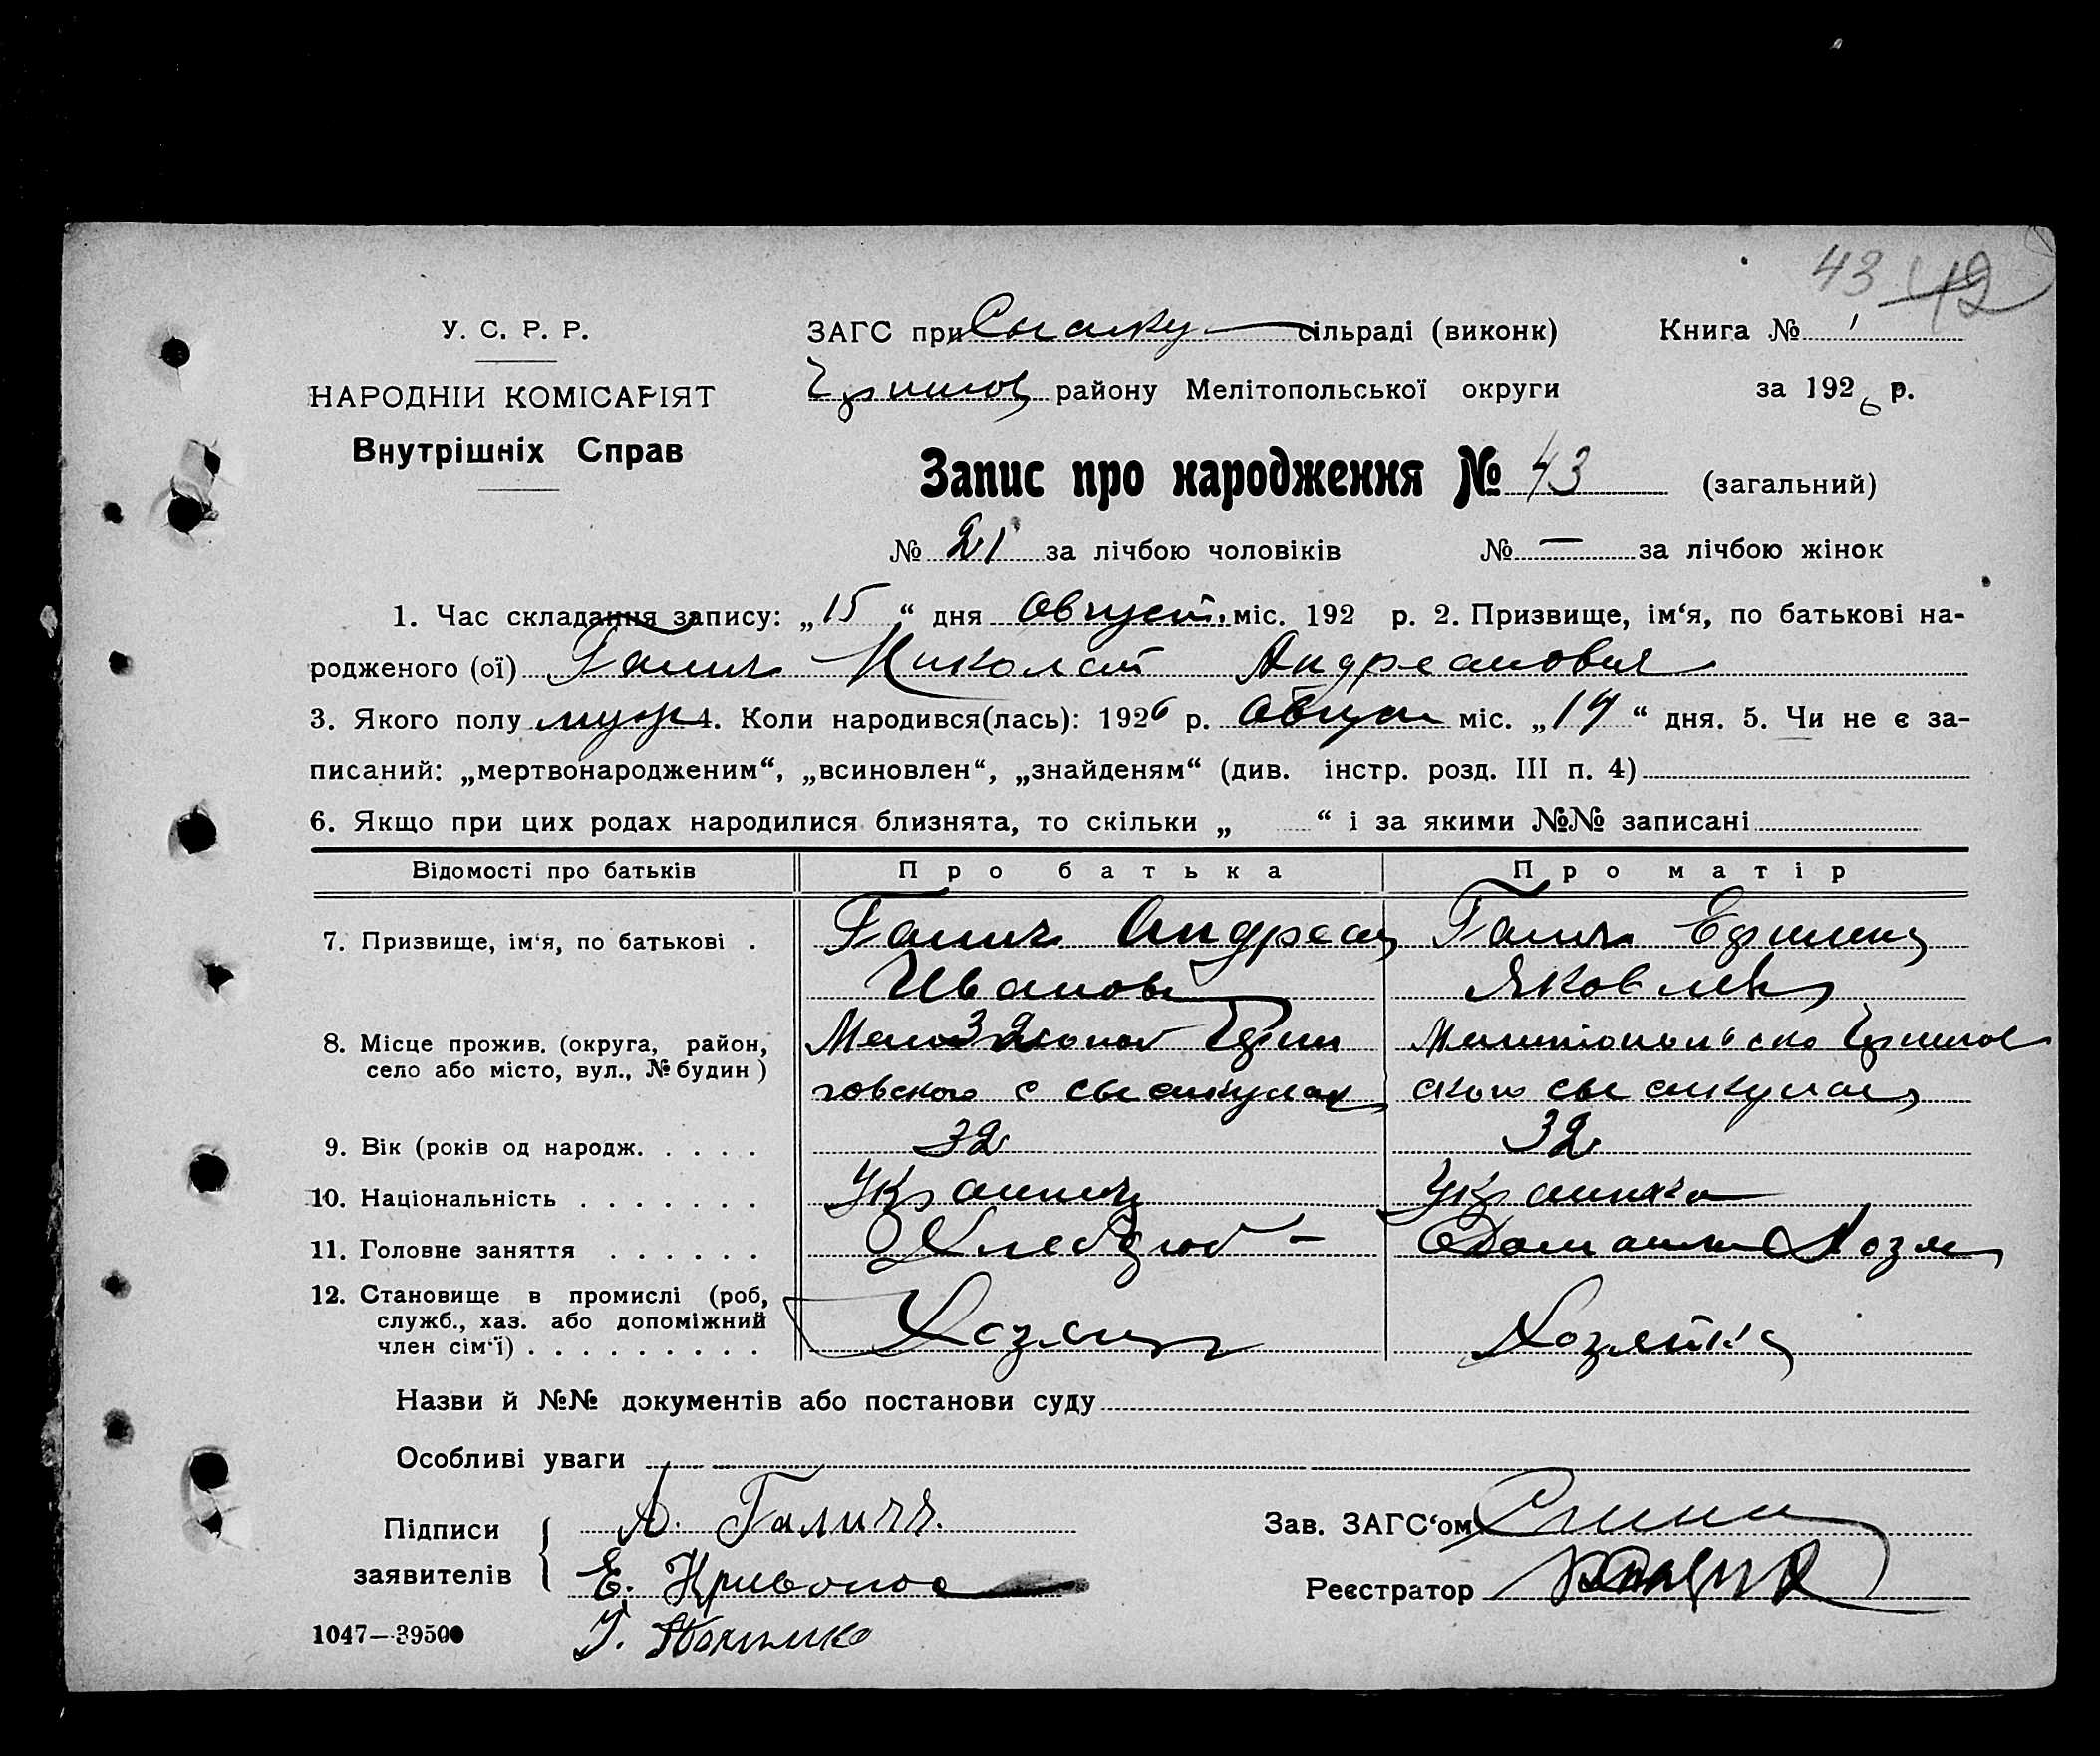 43 42
У. С. Р. Р.
НАРОДНІЙ КОМІСАРІЯТ
Внутрішніх Справ
ЗАГС при сільраді (виконк)
району Мелітопольської округи
Книга № 1
за 1926 р.
Запис про народження № 43 (загальний)
№ 21 за лічбою чоловіків № — за лічбою жінок
1. Час складання запису: „15“ дня Август. міс. 192 р. 2. Призвище, ім‘я, по батькові на-
родженого (ої) Галич Николай Андреанович
3. Якого полу муж 4. Коли народився(лась): 1926 р. Август міс. „14“ дня. 5. Чи не є за-
писаний: „мертвонародженим“, „всиновлен“, „знайденям“ (див. інстр. розд. III п. 4)
6. Якщо при цих родах народилися близнята, то скільки „ “ і за якими №№ записані
Відомості про батьків Про батька Про матір
7. Призвище, ім‘я, по батькові . Галич Андреан Галич
Иванов Яковлев
8. Місце прожив. (округа, район,
село або місто, вул., № будин)
9. Вік (років од народж. . . . . 32 32
10. Національність . . . . . . . Украинец Украинка
11. Головне заняття . . . . . . Хлебороб – Домашн Хозя
12. Становище в промислі (роб,
служб., хаз. або допоміжний
член сім‘ї) . . . . . . . . . Хозяин Хозяйка
Назви й №№ документів або постанови суду
Особливі уваги
Підписи
заявителів
А. Галичь.
Е. Кривонос
Зав. ЗАГС‘ом
Реєстратор
1047—39500